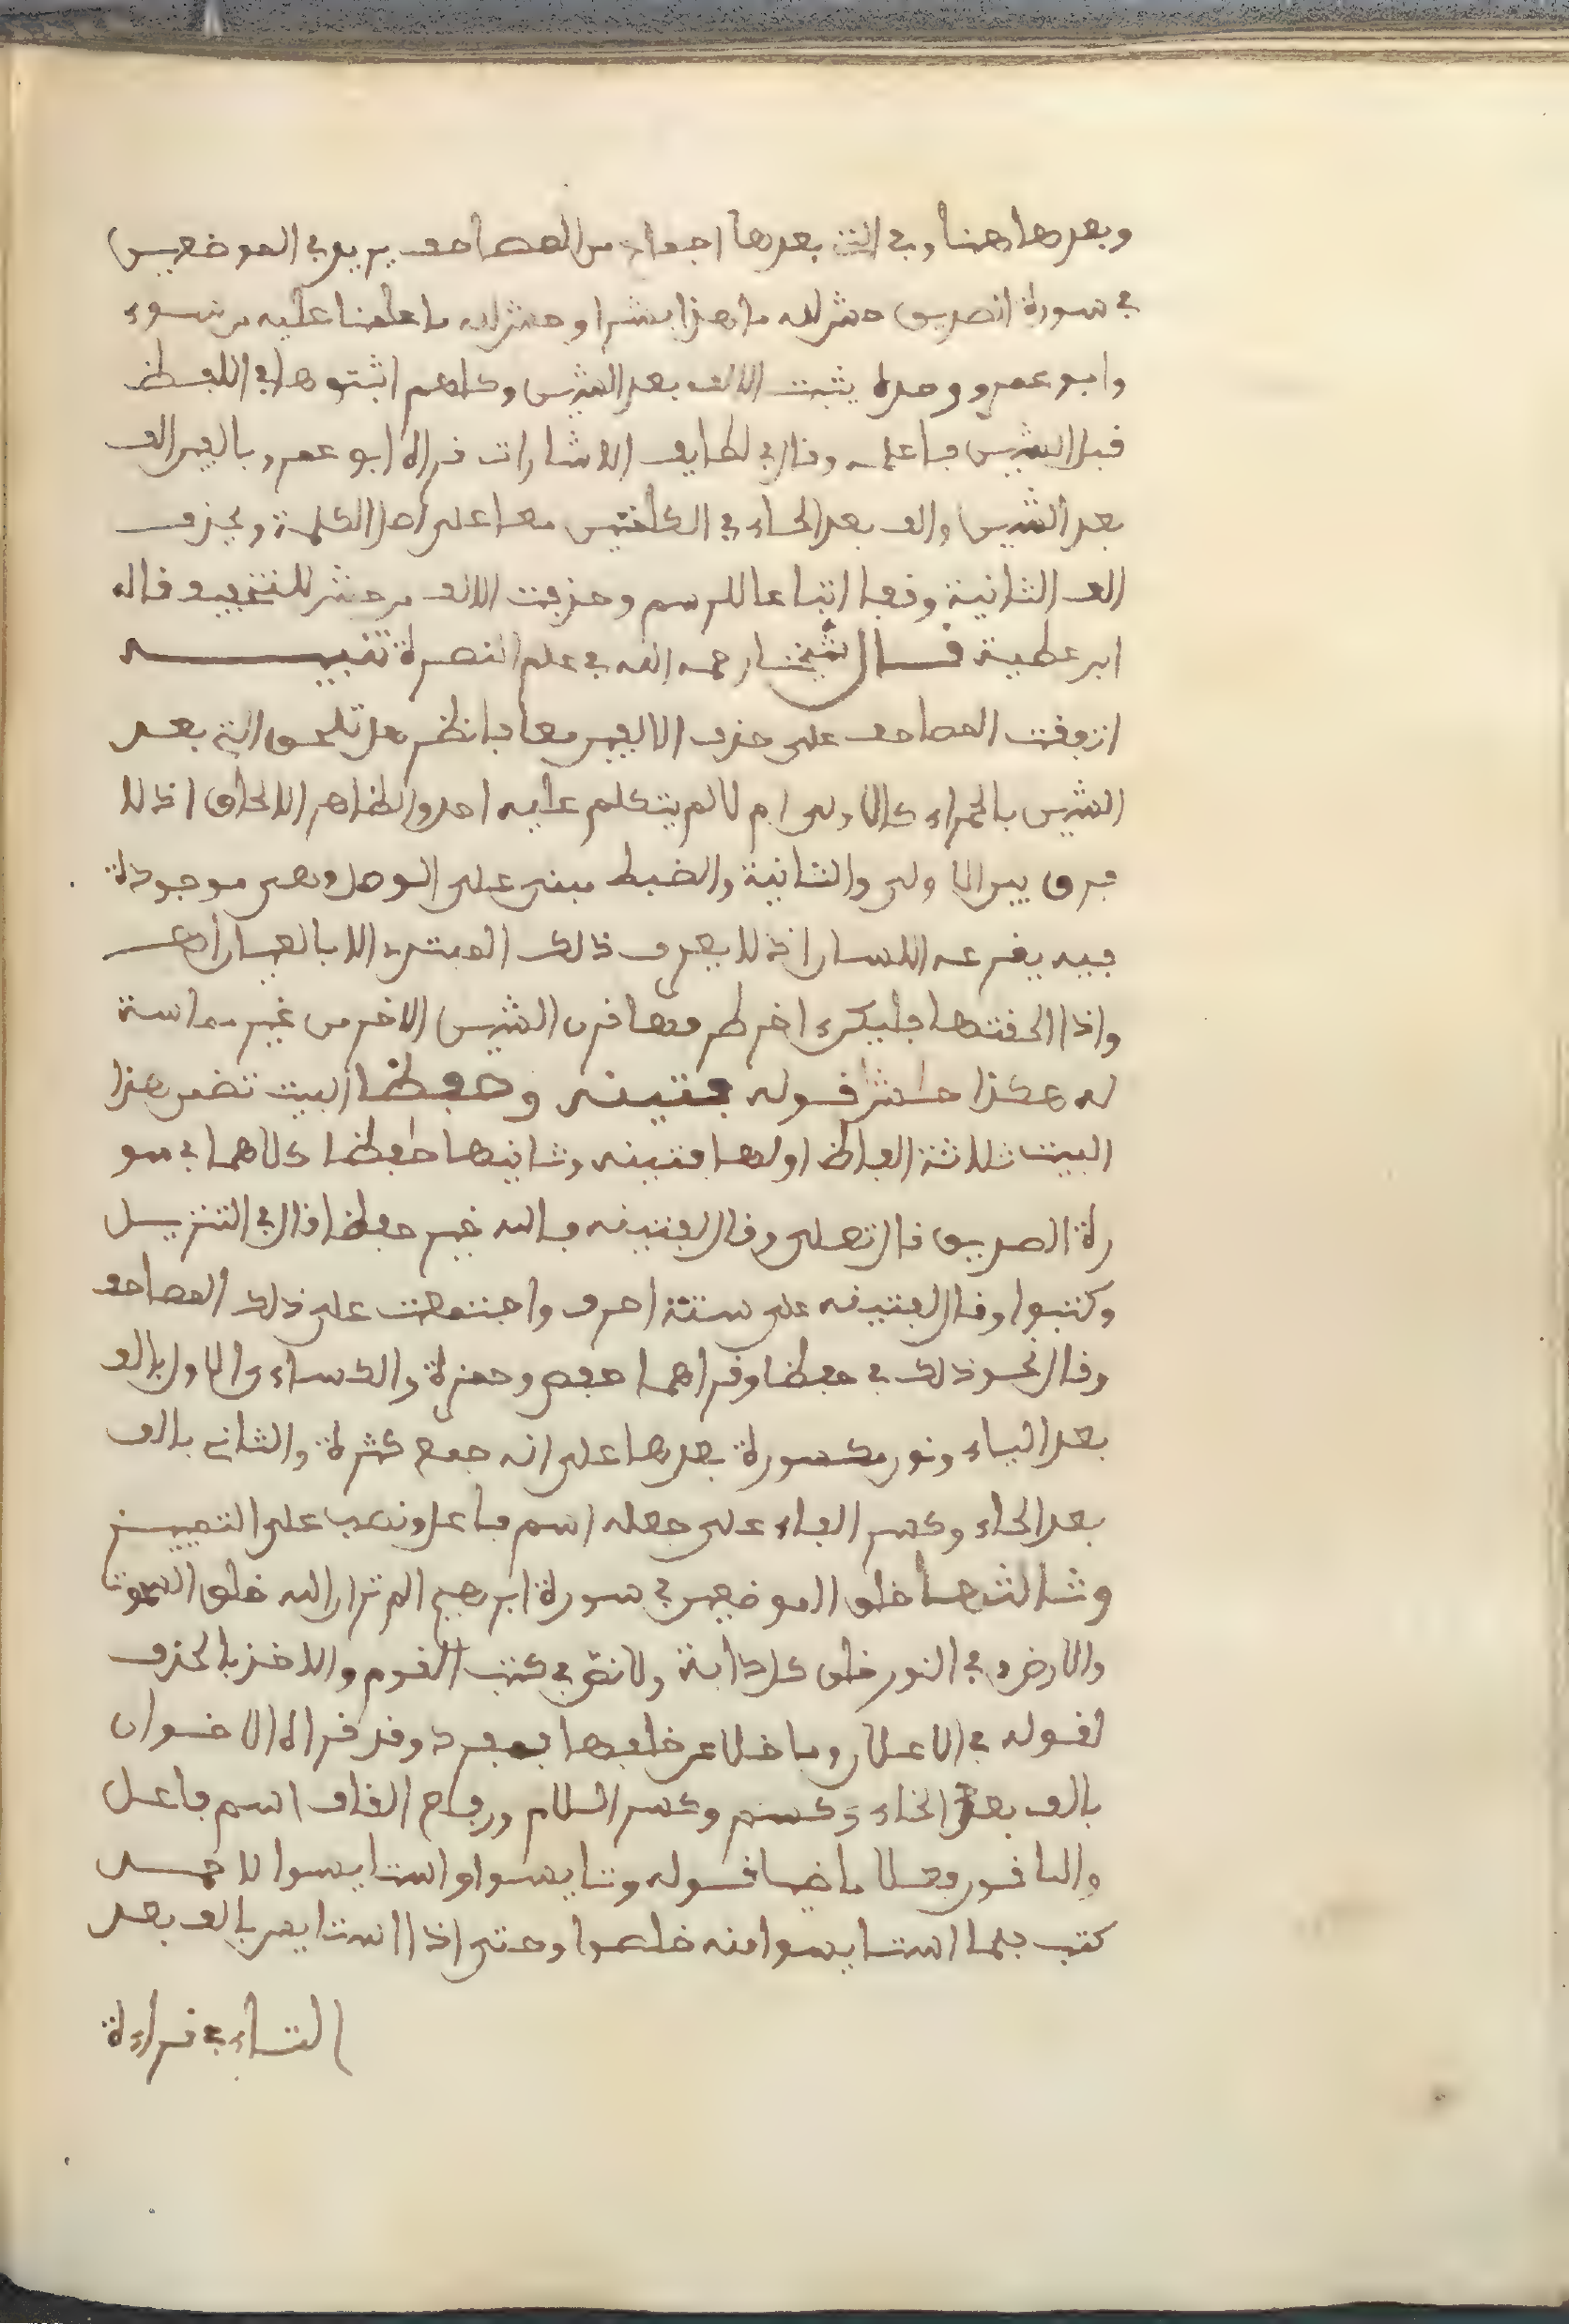 وبعدها هنا وفي التي بعدها اجماع من المصاحف يريد في الموضعين
في سورة الصديق حش لله ما هذا بشرا وحش لله ما علمنا عليه من سوء
وابو عمرو وحده يثبت الالف بعد الشين وكلهم اثبتوها في اللفظ
قبل الشين فاعلمه وقال في لطايف الاشارات قراه ابو عمرو بالفين الف
بعد الشين والف بعد الحاء في الكلمتين معا على اصل الكلمة وبحذف
الف الثانية وقفا اتباعا للرسم وحذفت الالف من حش للتخفيف قاله
ابن عطية قال شيخنا رحمه الله في علم النصرة تنبيه
اتفقت المصاحف على حذف الالفين معا فانظر هل تلحق التي بعد
الشين بالحمراء كالاولى ام لا لم يتكلم عليه احد والظاهر الالحاق اذ لا
فرق بين الاولى والثانية والضبط مبني على الوصل وهي موجودة
فيه يقرعه اللسان اذ لا يعرف ذلك المبتدي الا بالعيان
واذا الحقتها فليكن اخر طرفها قرن الشين الاخر من غير مماسة
له هكذا حش قوله فتينه وحفظا البيت تضمن هذا
البيت ثلاثة الفاظ اولها فتينه وثانيها حفظا كلاهما في سو
رة الصديق قال تعلى وقال لفتينه فالله خير حفظا قال في التنزيل
وكتبوا وقال لفتينه على ستة احرف واجتمعت على ذلك المصاحف
وقال نحو ذلك في حفظا وقراهما حفص وحمزة والكساءي الاول بالف
بعد الياء ونون مكسورة بعدها على انه جمع كثرة والثاني بالف
بعد الحاء وكسر الفاء على جعله اسم فاعل ونصب على التمييز
وثالثها خلق الموضعين في سورة ابرهيم الم تر ان الله خلق السموت
والارض وفي النور خلق كل دابة ولا نص في كتب القوم والاخذ بالحذف
لقوله في الاعلان وما خلا عن خلفها فمفرد وقد قراه الاخوان
بالف بعد الخاء وكسر وكسر اللام ورفع القاف اسم فاعل
والباقون فعلا ماضيا قوله وتايسوا واستايسوا لاحمد
كتب فلما استايسوا منه خلصوا وحتى اذا استايس بالف بعد
التاء في قراءة